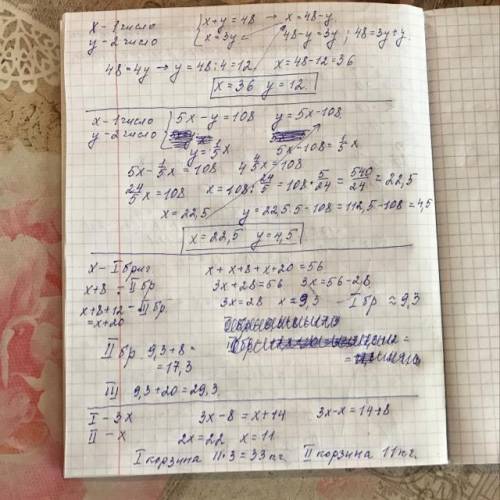 x - 1 число { x+y=48 → x=48-y
y - 2 число { x=3y = 48-y=3y ; 48=3y+y
48=4y → y=48:4=12. x=48-12=36
x=36 y=12.
x - 1 число { 5x-y=108 y=5x-108
y - 2 число { y=1/5x 5x-108=1/5x
5x-1/5x=108 4 4/5x=108
24/5x=108 x=108:24/5=108·5/24=540/24=22,5
x=22,5 y=22,5·5-108=112,5-108=4,5
x=22,5 y=4,5
x - I бриг x+x+8+x+20=56
x+8 - II бр 3x+28=56 3x=56-28
x+8+12 - III бр. 3x=28 x=9,3 - I бр ≈9,3
=x+20
II бр 9,3+8=
=17,3
III 9,3+20=29,3
I - 3x 3x-8=x+14 3x-x=14+8
II - x 2x=22 x=11
I корзина 11·3=33кг II корзина 11кг.